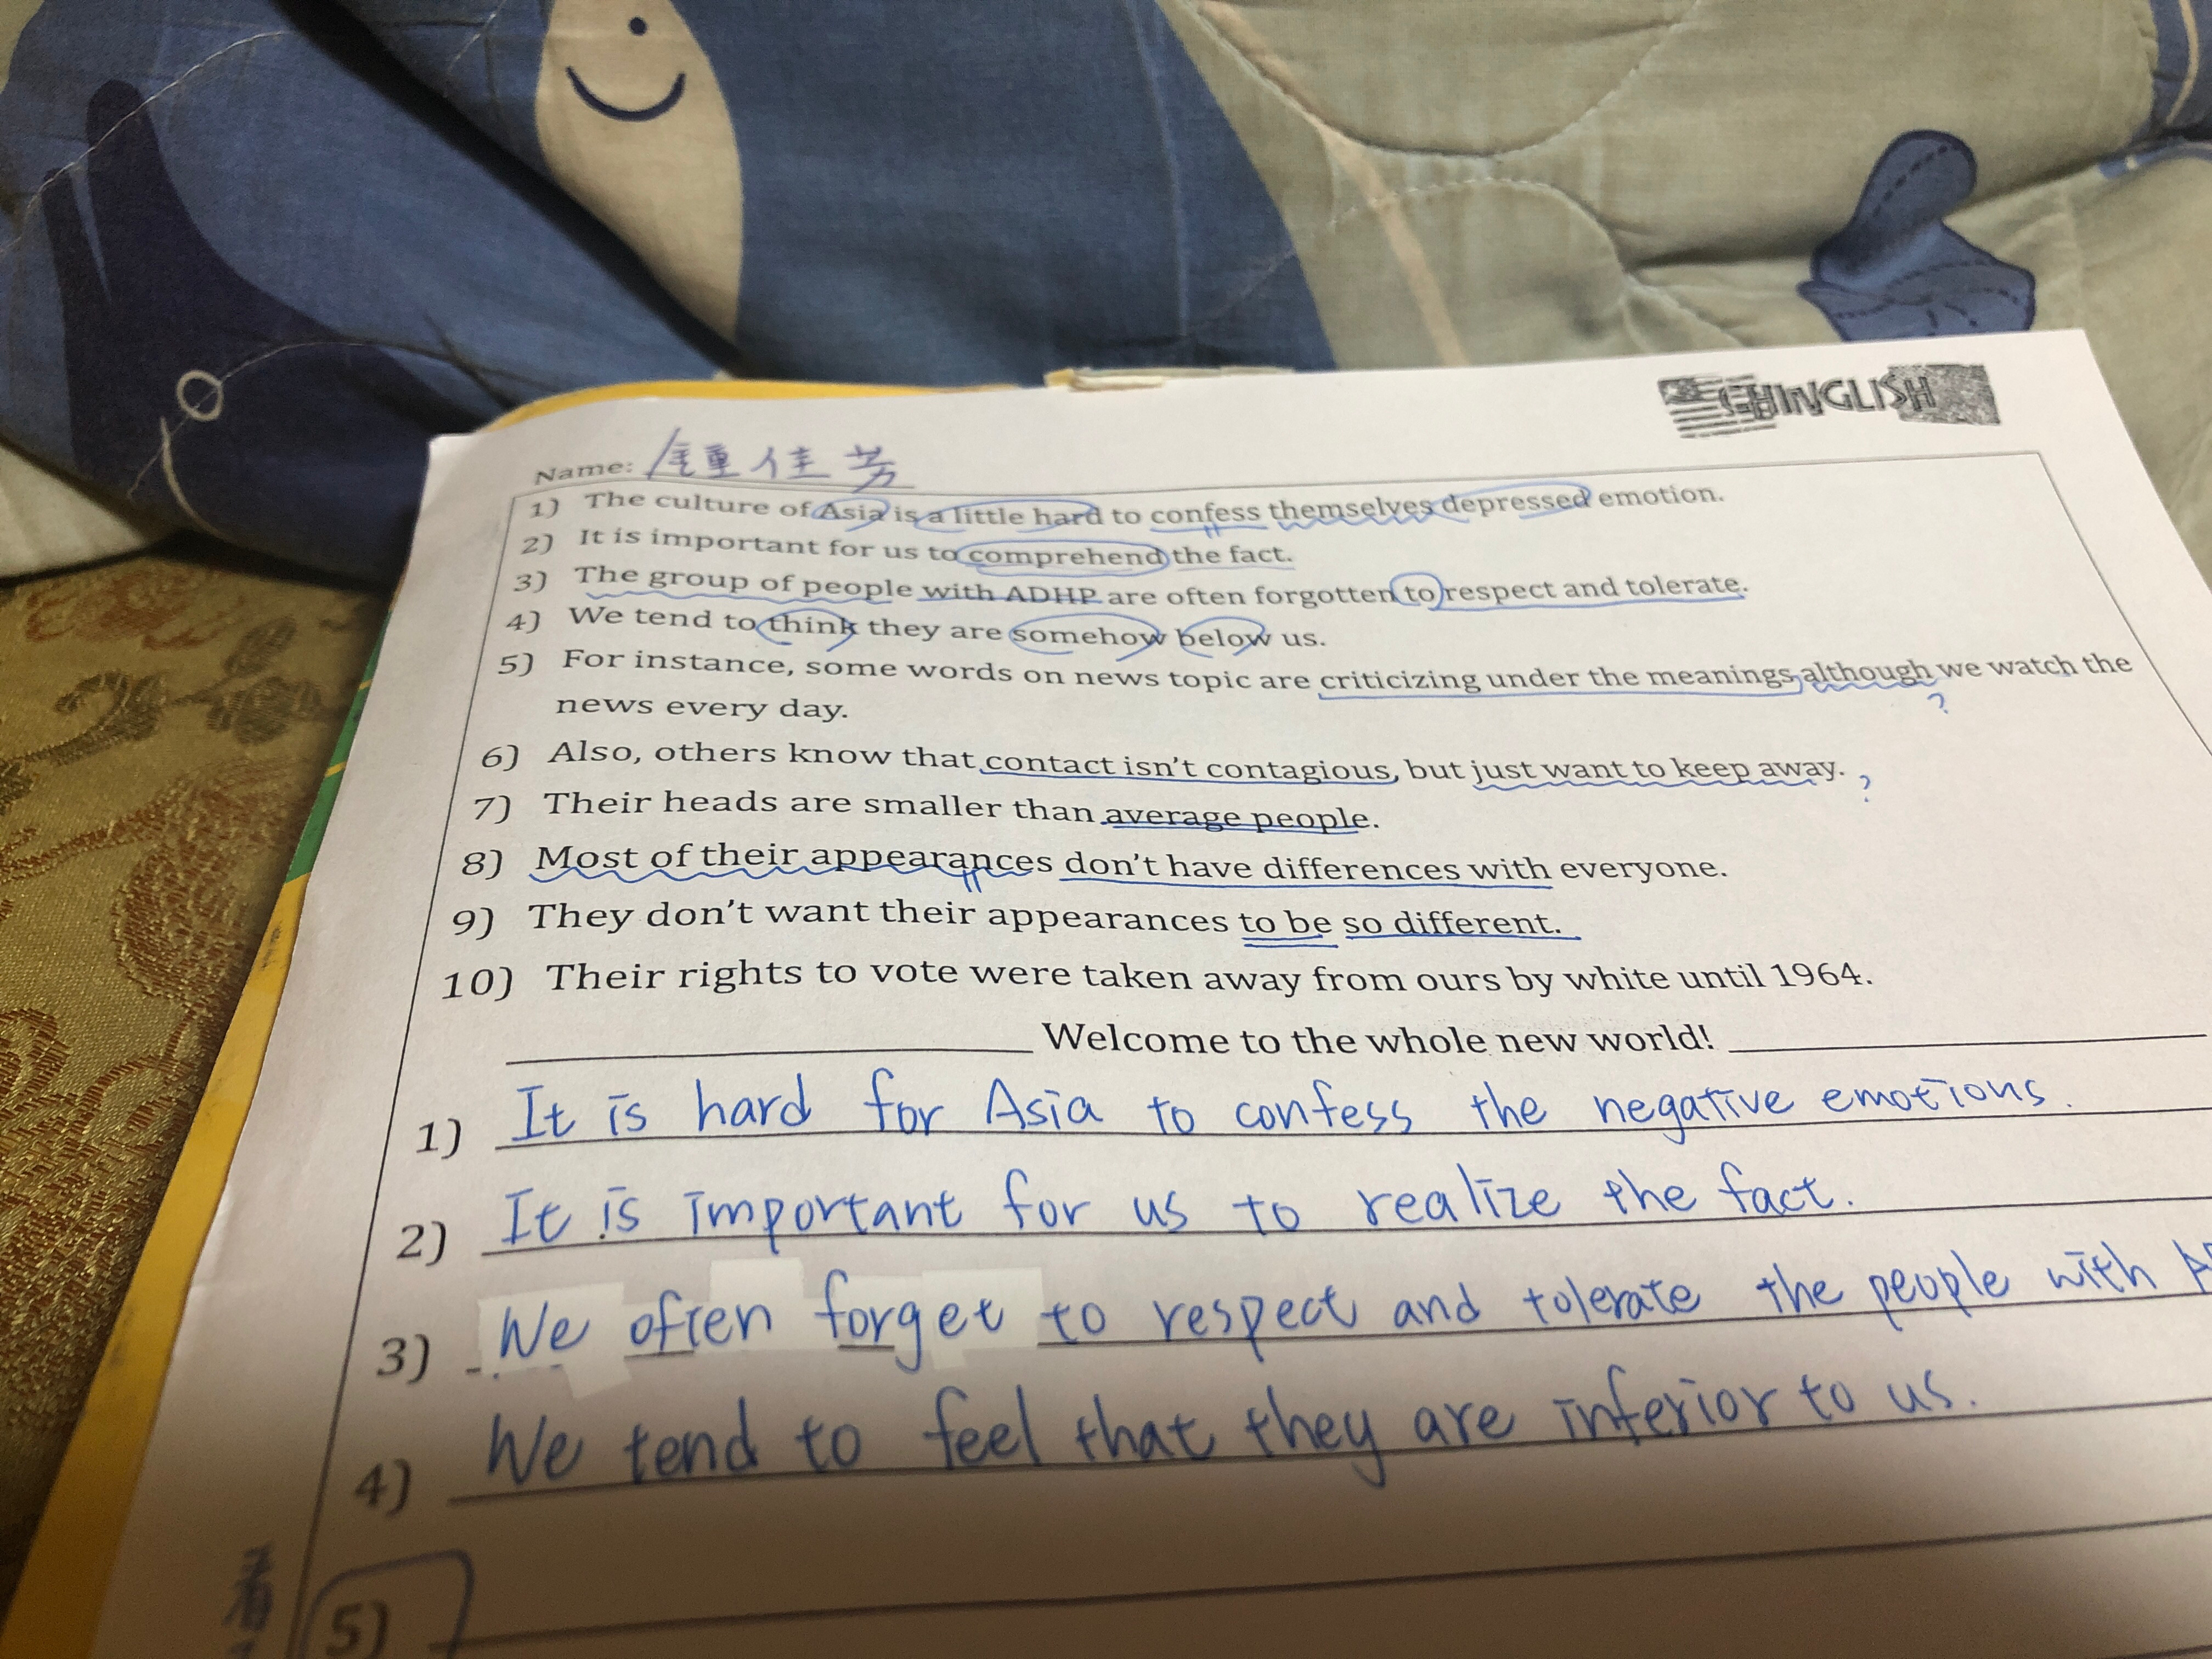 CHINGLISH
Name: 鍾佳芳
1) The culture of Asia is a little hard to confess themselves depressed emotion.
2) It is important for us to comprehend the fact.
3) The group of people with ADHP are often forgotten to respect and tolerate.
4) We tend to think they are somehow below us.
5) For instance, some words on news topic are criticizing under the meanings, although we watch the
?
news every day.
6) Also, others know that contact isn't contagious, but just want to keep away.
?
7) Their heads are smaller than average people.
8) Most of their appearances don't have differences with everyone.
9) They don't want their appearances to be so different.
10) Their rights to vote were taken away from ours by white until 1964.
Welcome to the whole new world!
1) It is hard for Asia to confess the negative emotions.
2) It is important for us to realize the fact.
3) We often forget to respect and tolerate the people with
4) We tend to feel that they are inferior to us.
5)